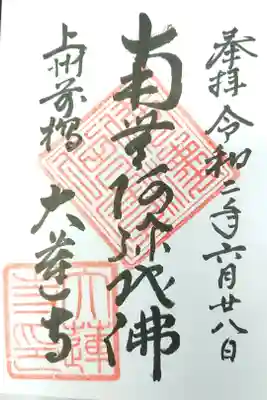 奉拝 令和二年六月廿八日
南無阿弥陀佛
上州前橋 大蓮寺